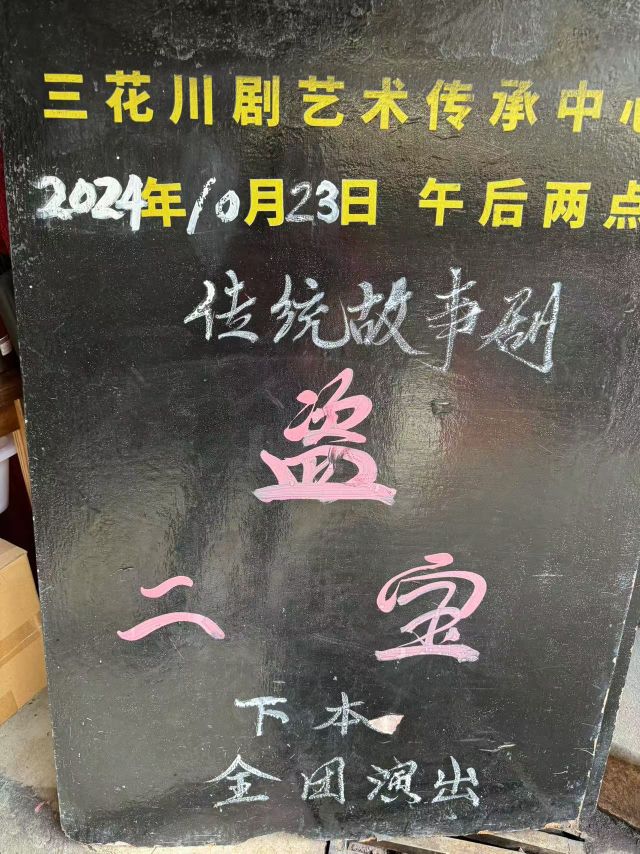 三花川剧艺术传承中心
2024年10月23日 午后两点
传统故事剧
盗
二 宝
下本
全团演出